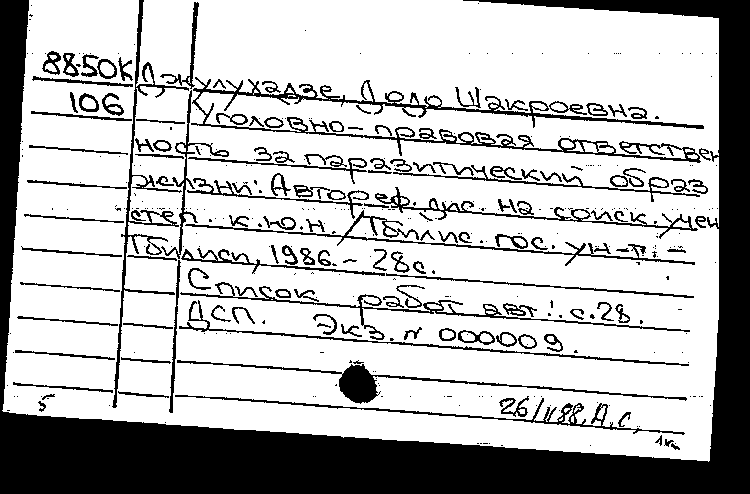 88-50К Джулухадзе, Додо Шакроевна.
106 Уголовно-правовая ответствен
ность за паразитический образ
жизни: Автореф. дис. на соиск. учен
степ. к.ю.н. / Тбилис. гос. ун-т. –
Тбилиси, 1986. – 28с.
Список работ авт.: с.28.
ДСП. Экз. N 000009.
5 26/II 88. А.С.